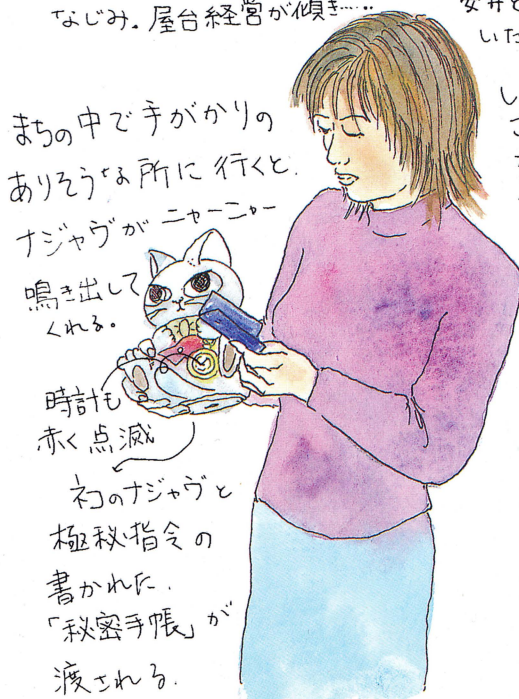 なじみ．屋台経営が傾き……
いた
まちの中で手がかりの
ありそうな所に行くと、
ナジャヴがニャーニャー
鳴き出して
くれる。
時計も
赤く点滅
ネコのナジャヴと
極秘指令の
書かれた、
「秘密手帳」が
渡される.